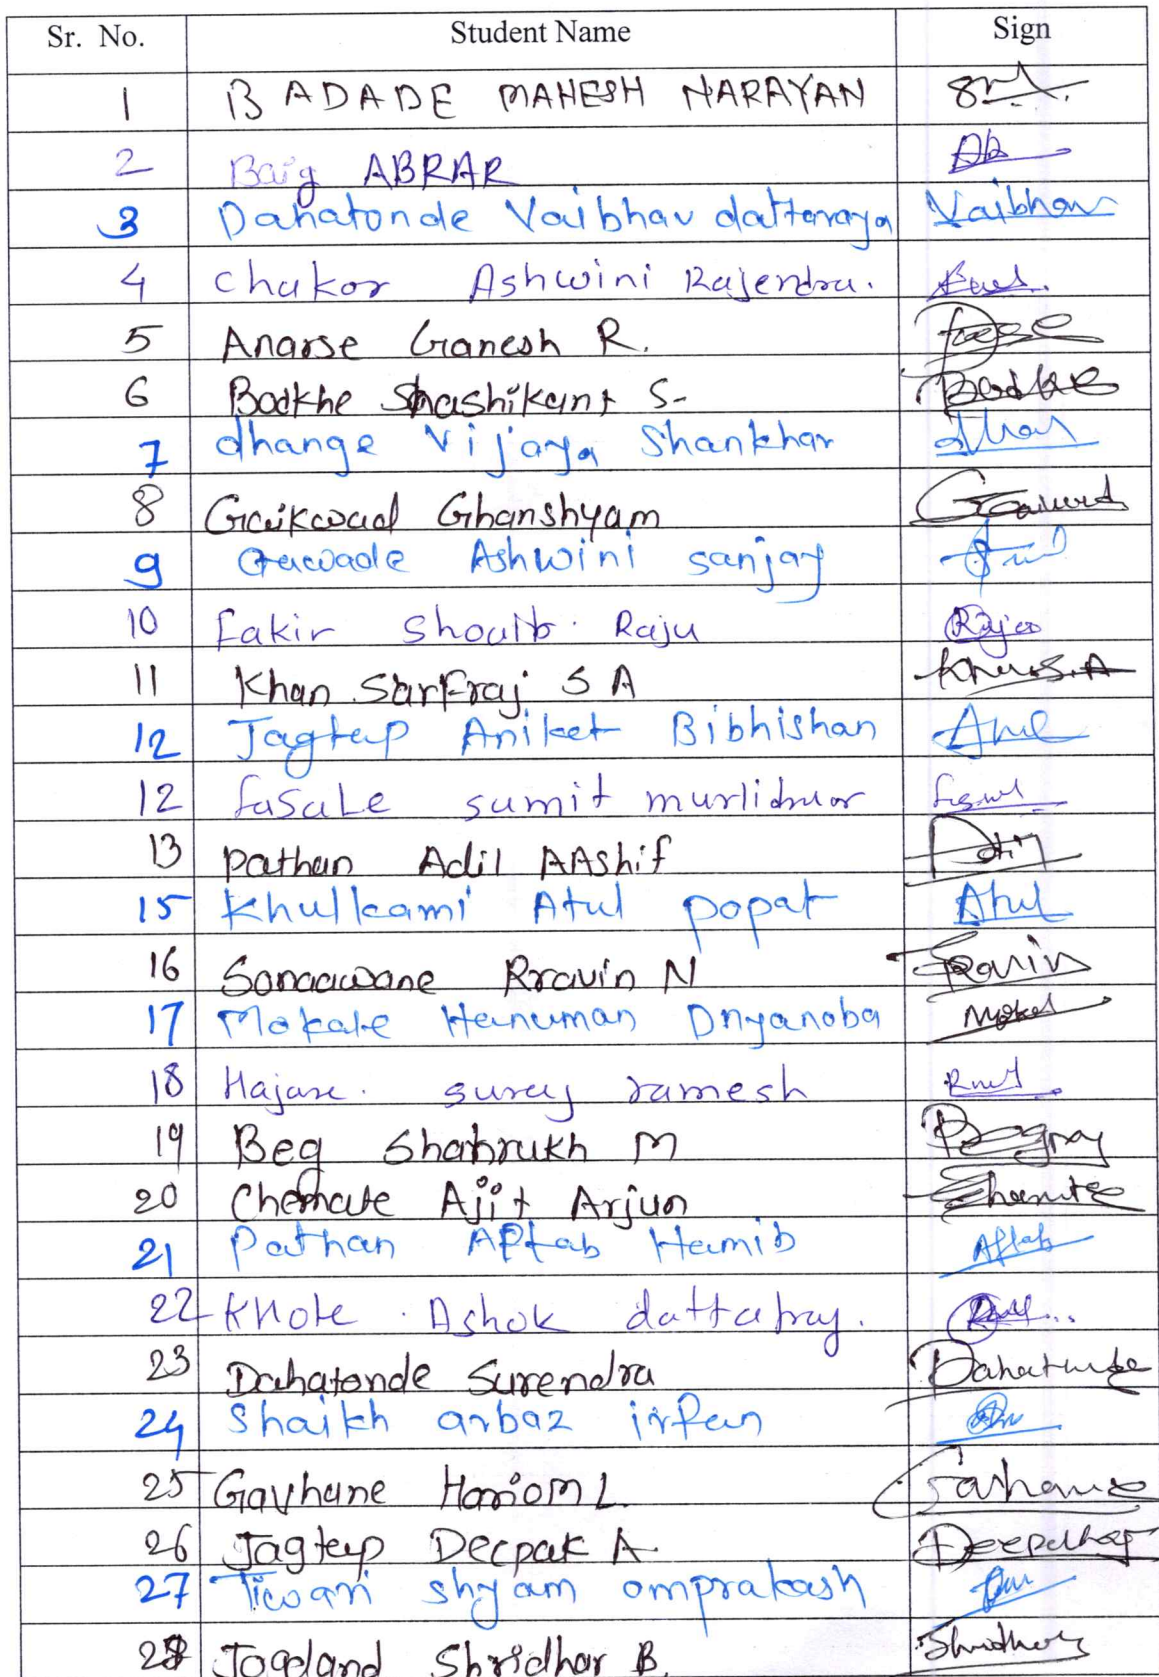 Sr. No. Student Name Sign
1 BADADE MAHESH NARAYAN
2 Baig ABRAR
3 Dahatonde Vaibhav dattatraya Vaibhav
4 Chakor Ashwini Rajendra.
5 Anarse Ganesh R.
6 Bodkhe Shashikant S- Bodkhe
7 dhange Vijaya Shankhar
8 Gaikwad Ghanshyam
9 Gawade Ashwini sanjay
10 fakir Shoaib. Raju
11 Khan Sarfraj S A
12 Jagtap Aniket Bibhishan
12 fasale sumit murlidhar
13 Pathan Adil AAshif
15 Khulkarni Atul popat Atul
16 Sonaawane Rravin N
17 Mokate Hanuman Dnyanoba
18 Hajare. suraj ramesh
19 Beg Shahrukh M
20 Chemate Ajit Arjun
21 Pathan Aftab Hamib Aftab
22 Khote. Ashok dattatray.
23 Dahatonde Surendra
24 Shaikh arbaz irfan
25 Gavhane Hariom L.
26 Jagtap Deepak A.
27 Tiwari shyam omprakash
28 Jogdand Shridhar B.